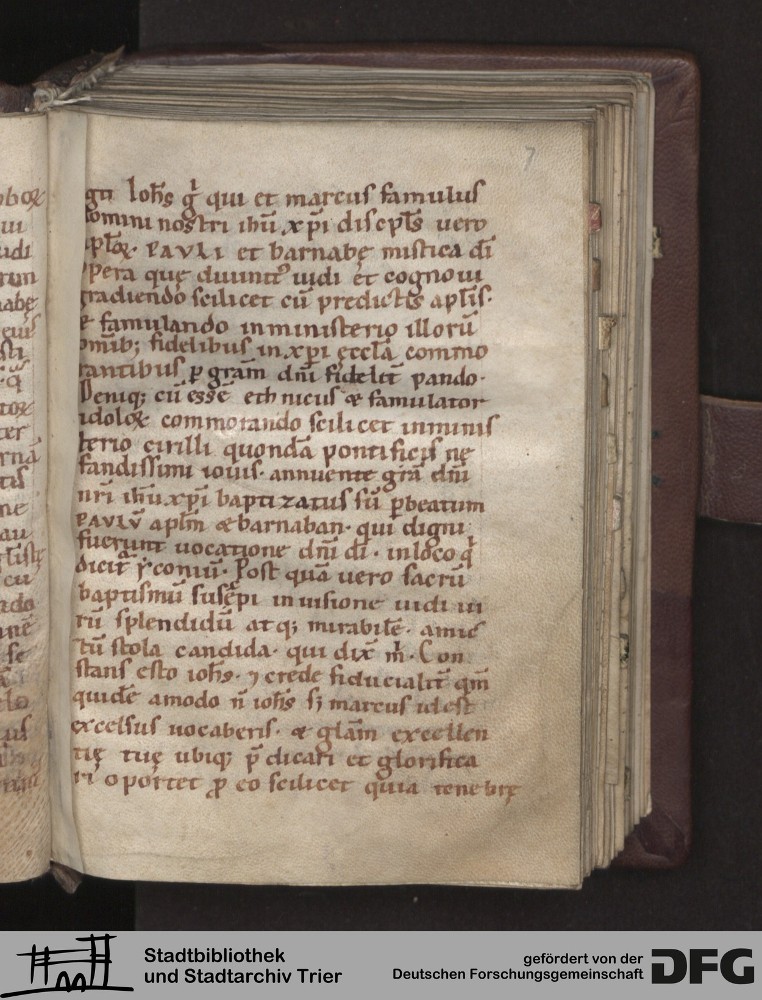 7
Ioh̄s g̊ qui et marcus famulus
domini nostri ihū xp̄i discip̄ls vero
apl̄oꝝ. PAVLI et barnabę mistica dī
opera quę diuinit᷒ uidi et cognoui
gradiendo scilicet cū predictis apl̄is.
& famulando in ministerio illorū
omīb; fidelibus in xp̄i eccl̄a commo
rantibus ꝑ grām dnī fidelit̄ pando.
Deniq; cū essē ethnicus & famulator
idoloꝝ commorando scilicet in minis
terio cirilli quondā pontificis ne
fandissimi iouis. annuente grā dnī
nrī ihū xp̄i baptizatus sū ꝑ beatum
PAVLV̄ apl̄m & barnaban. qui digni
fuerunt uocatione dnī dī. in loco q̄
dicit̄ yconiū. Post quā uero sacrū
baptismū suscepi in uisione uidi ui
rū splendidū atq; mirabilē. amic
tū stola candida. qui dix̄ m̄. Con
stans esto ioh̄s. ⁊ crede fiducialit̄ qm̄
quidē amodo n̄ ioh̄s sꝫ marcus id est
excelsus uocaberis. & glām excellen
tię tuę ubiq; p̄dicari et glorifica
ri oportet ꝓ eo scilicet quia tenebrę
Stadtbibliothek
und Stadtarchiv Trier
gefördert von der
Deutschen Forschungsgemeinschaft
DFG